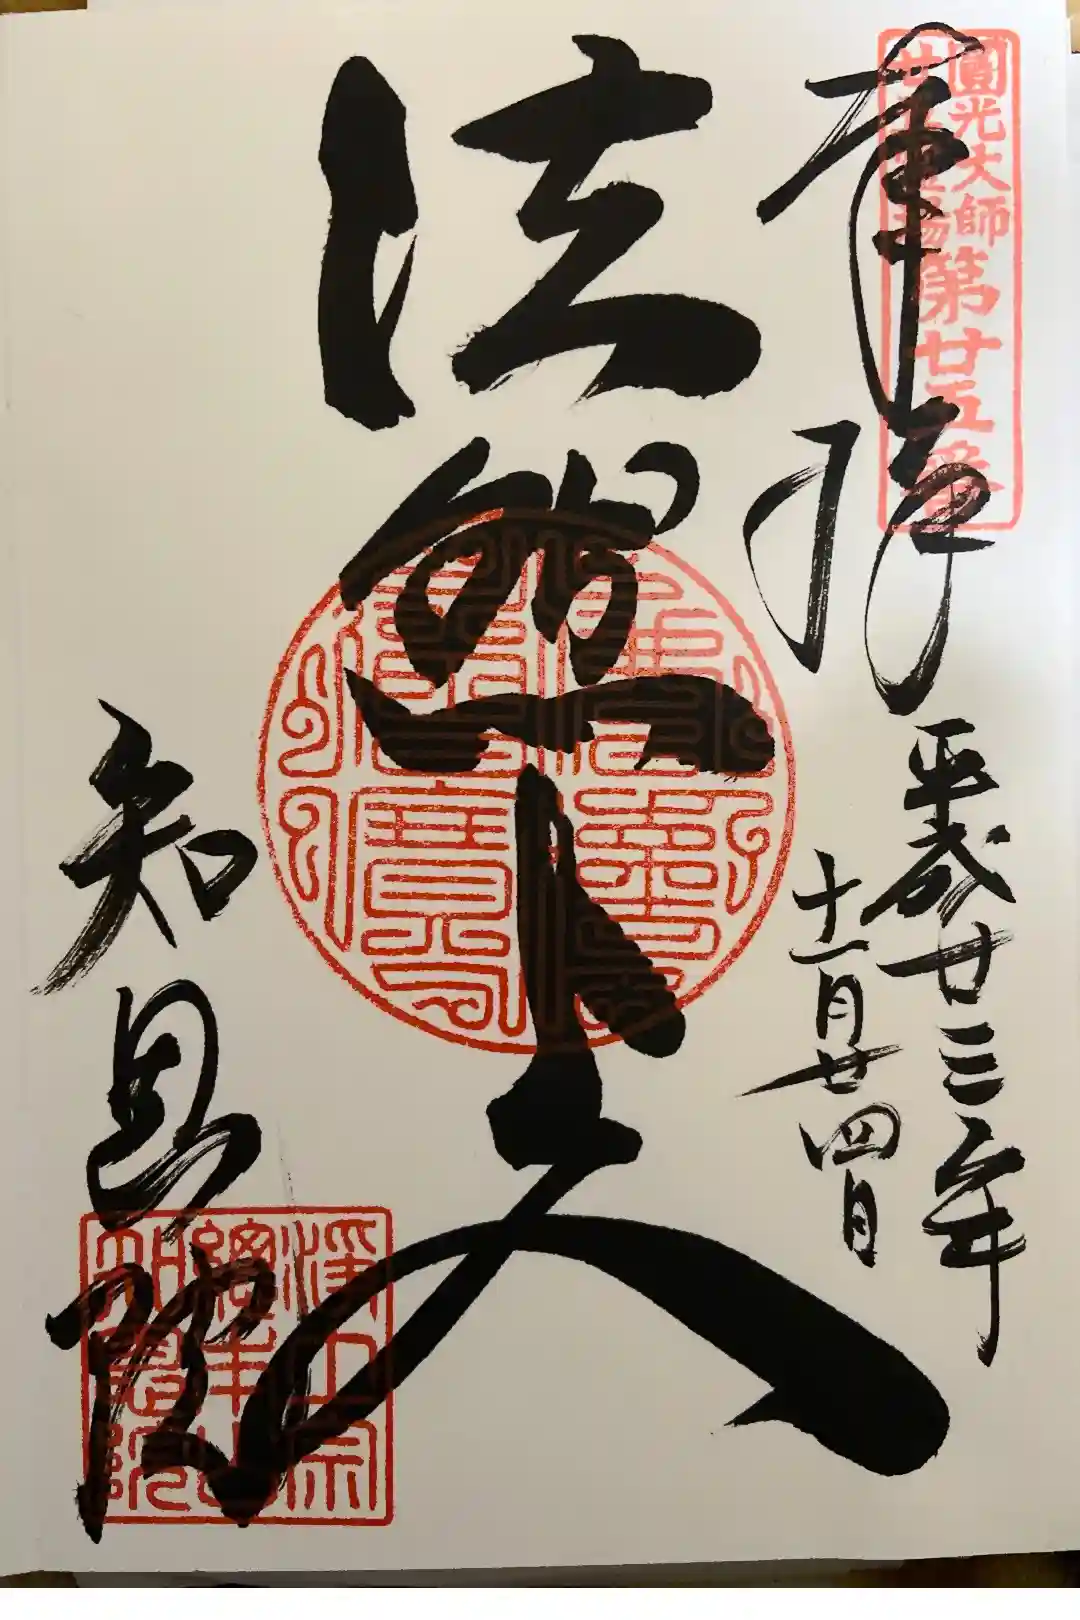 圓光大師
廿五靈場
第廿五番
奉拝
平成廿三年
十一月廿四日
法然上人
知恩院
淨土宗
總本山
知恩院